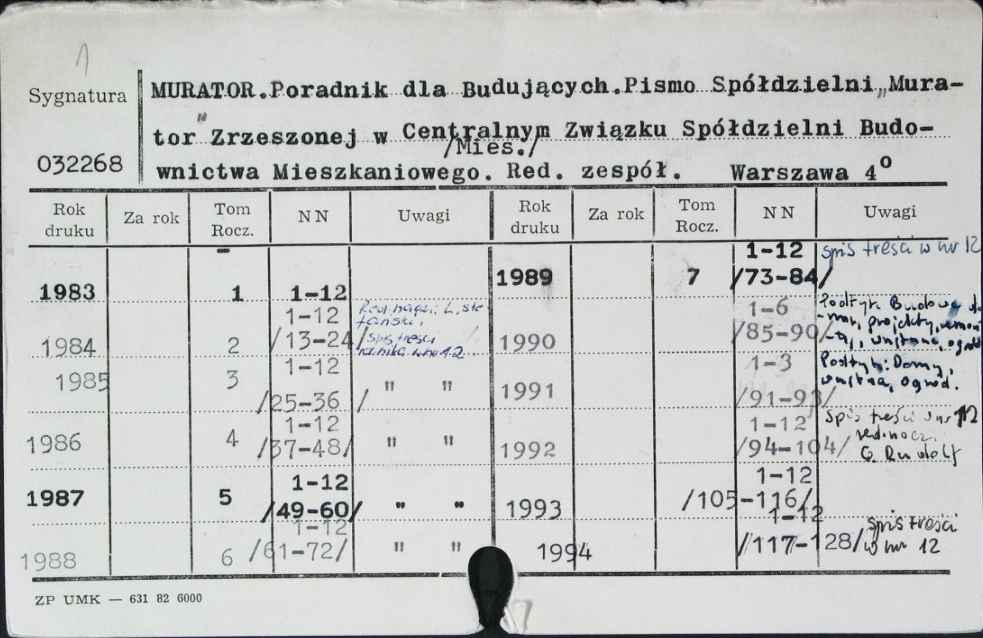 1
Sygnatura
032268
MURATOR.Poradnik dla Budujących.Pismo Spółdzielni„Mura-
tor" Zrzeszonej w Centralnym Związku Spółdzielni Budo-
/Mies./
wnictwa Mieszkaniowego. Red. zespół. Warszawa 4°
Rok druku Za rok Tom Rocz. NN Uwagi Rok druku Za rok Tom Rocz. NN Uwagi
1983 1 1-12
1984 2 1-12 /13-24/ Red. nacz.: L. Stefański. /spis treści w nr 12
1985 3 1-12 /25-36/ " "
1986 4 1-12 /37-48/ " "
1987 5 1-12 /49-60/ " "
1988 6 1-12 /61-72/ " "
1989 7 1-12 /73-84/ spis treści w nr 12
1990 1-6 /85-90/ Podtyt. Budowa projekty, wnętrza, ogród
1991 1-3 /91-93/ Podtyt.: Domy, wnętrza, ogród.
1992 1-12 /94-104/ Spis treści w nr 12 red. nacz. G. Rudolf
1993 1-12 /105-116/
1994 1-12 /117-128/ spis treści w nr 12
ZP UMK — 631 82 6000